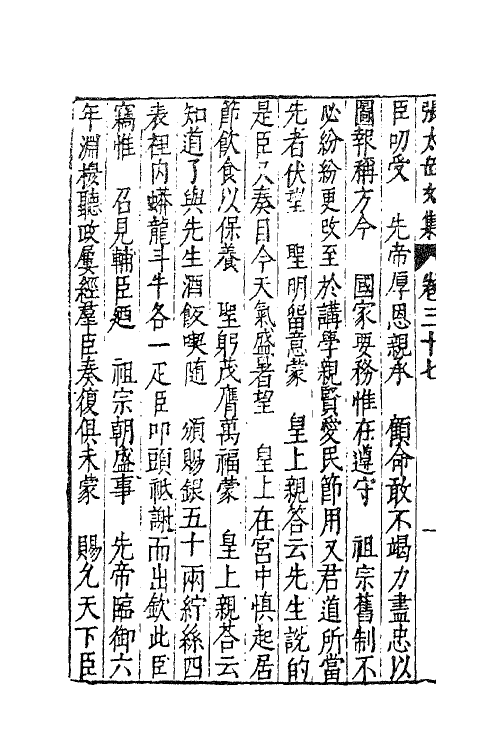 張太岳文集 卷三十七 一
臣叨受 先帝厚恩親承 顧命敢不竭力盡忠以
圖報稱方今 國家要務惟在遵守 祖宗舊制不
必紛紛更改至於講學親賢愛民節用又君道所當
先者伏望 聖明留意蒙 皇上親答云先生說的
是臣又奏目今天氣盛暑望 皇上在宮中慎起居
節飲食以保養 聖躬茂膺萬福蒙 皇上親荅云
知道了與先生酒飯喫隨 頒賜銀五十兩紵絲四
表裡內蟒龍斗牛各一疋臣叩頭祗謝而出欽此臣
竊惟 召見輔臣廼 祖宗朝盛事 先帝臨御六
年淵穆聽政屢經羣臣奏復俱未蒙 賜允天下臣